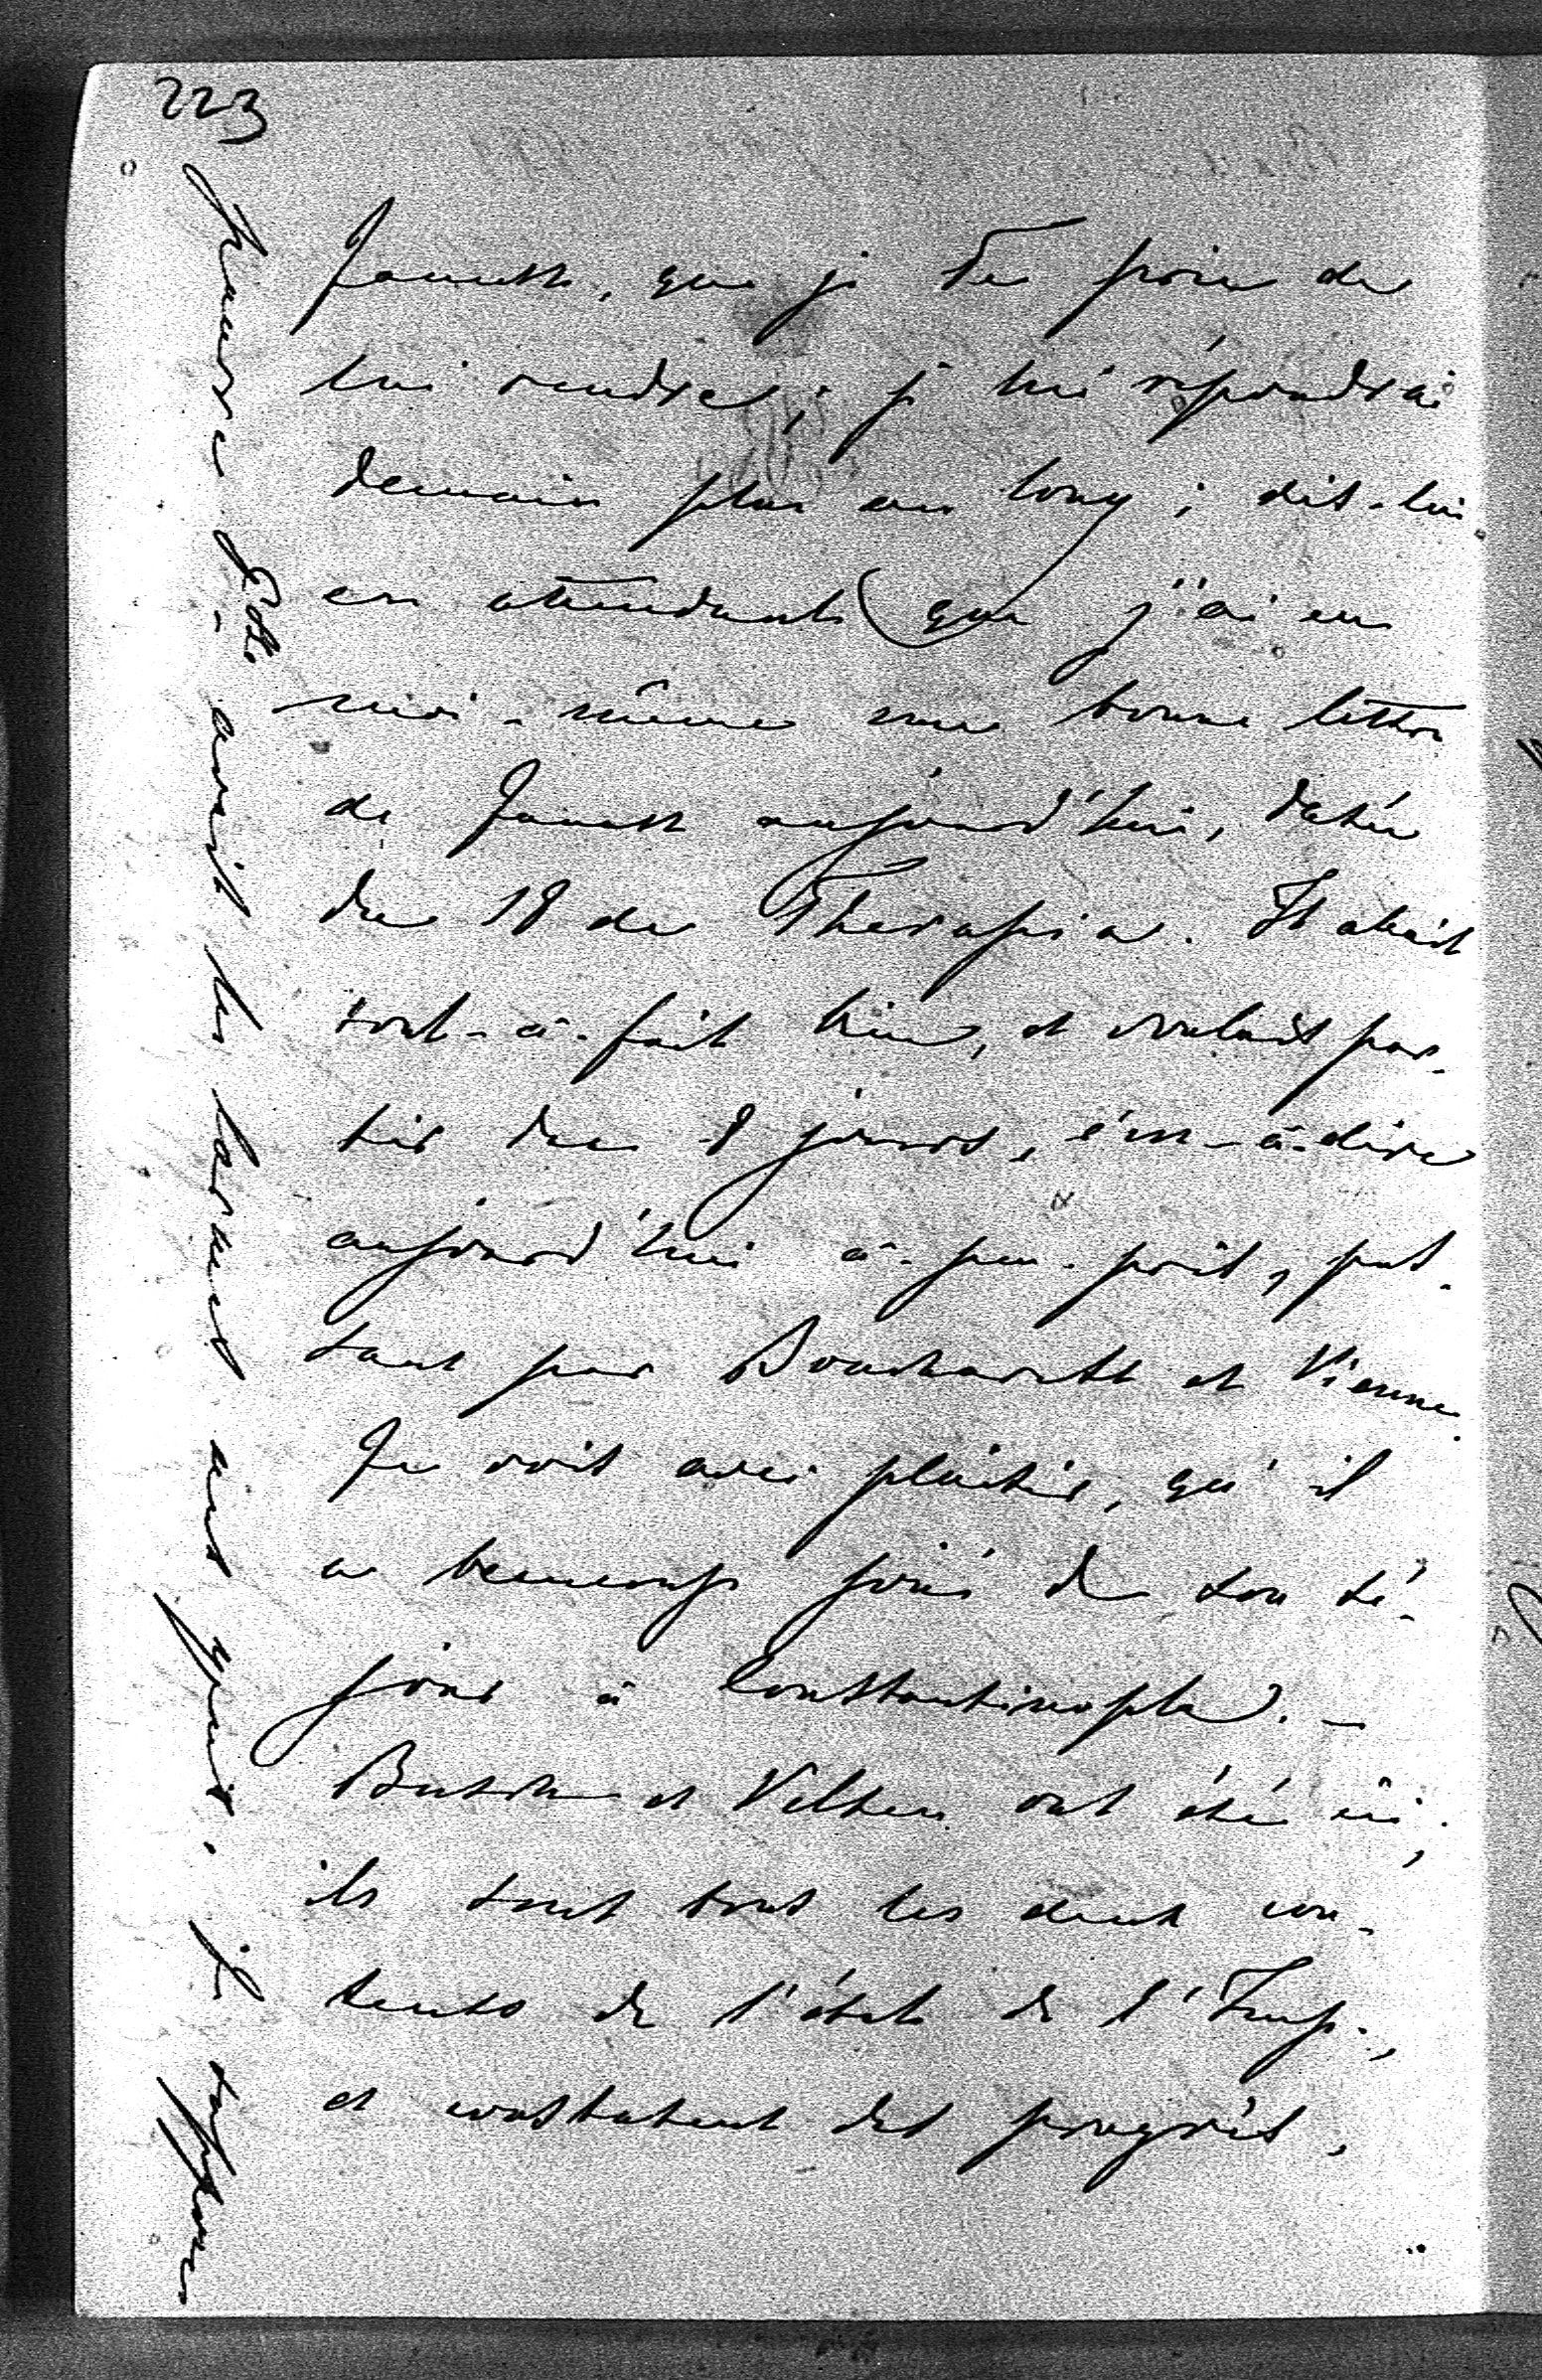 223
Jauness, que je Te prie de
lui rendre; je lui répondrai
demain plus au long; dis-lui
en attendant que j'ai eu
moi-même une bonne lettre
de Jauness aujourd'hui, datée
du 18 de Therapia. Il allait
tout-à-fait bien, et voulait par-
tir dans 8 jours, c'est-à-dire
aujourd'hui à-peu-près,
par et Vienne.
Je vois avec plaisir, qu'il
a beaucoup joui de son sé-
jour à Constantinople. –
et ont été ici;
ils sont tous les deux con-
tents de l'état de l'Imp.,
et constatent des progrès.
Pauvre avait les larmes aux yeux. Je suppose